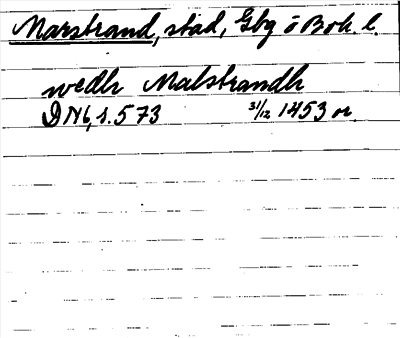 Marstrand, stad, Gbg o Boh. l.
wedh Malstrandh
DN6, s. 573 31/12 1453 or.